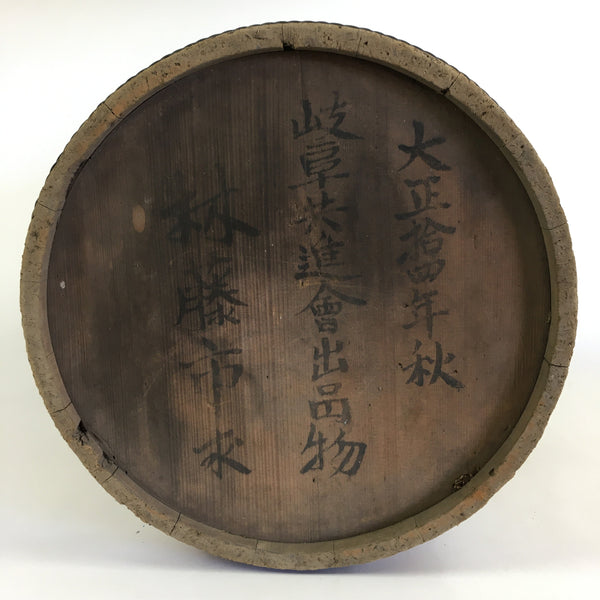 大正拾四年秋
岐阜共進會出品物
林藤市